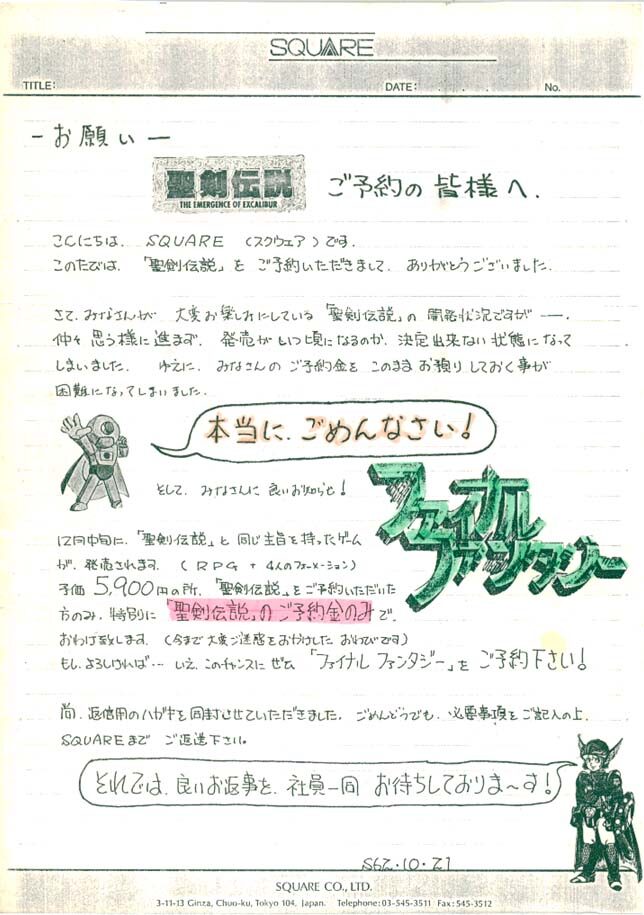 SQUARE
TITLE: DATE: No.
－お願い－
聖剣伝説
THE EMERGENCE OF EXCALIBUR
ご予約の皆様へ.
こんにちは. SQUARE (スクウェア)です.
このたびは.「聖剣伝説」を ご予約いただきまして. ありがとうございました.
さて. みなさんが 大変お楽しみにしている「聖剣伝説」の 開発状況ですが──.
仲々 思う様に進まず. 発売が いつ頃になるのか. 決定出来ない状態になって
しまいました. ゆえに. みなさんの ご予約金を このまま お預りしておく事が
困難になってしまいました.
本当に. ごめんなさい!
そして. みなさんに良いお知らせ!
ファイナル
ファンタジー
12月中旬に.「聖剣伝説」と同じ主旨を持ったゲーム
が. 発売されます. (RPG + 4人のフォーメーション)
予価 5,900円の所.「聖剣伝説」をご予約いただいた
方のみ. 特別に「聖剣伝説」のご予約金のみで.
おわけ致します. (今まで大変ご迷惑をおかけした おわびです)
もし.よろしければ… いえ.このチャンスに ぜひ 「ファイナル ファンタジー」を ご予約下さい!
尚. 返信用のハガキを同封させていただきました. ごめんどうでも. 必要事項をご記入の上.
SQUAREまで ご返送下さい.
それでは. 良いお返事を. 社員一同 お待ちしておりま〜す!
S62.10.21
SQUARE CO., LTD.
3-11-13 Ginza, Chuo-ku, Tokyo 104, Japan. Telephone:03-545-3511 Fax:545-3512